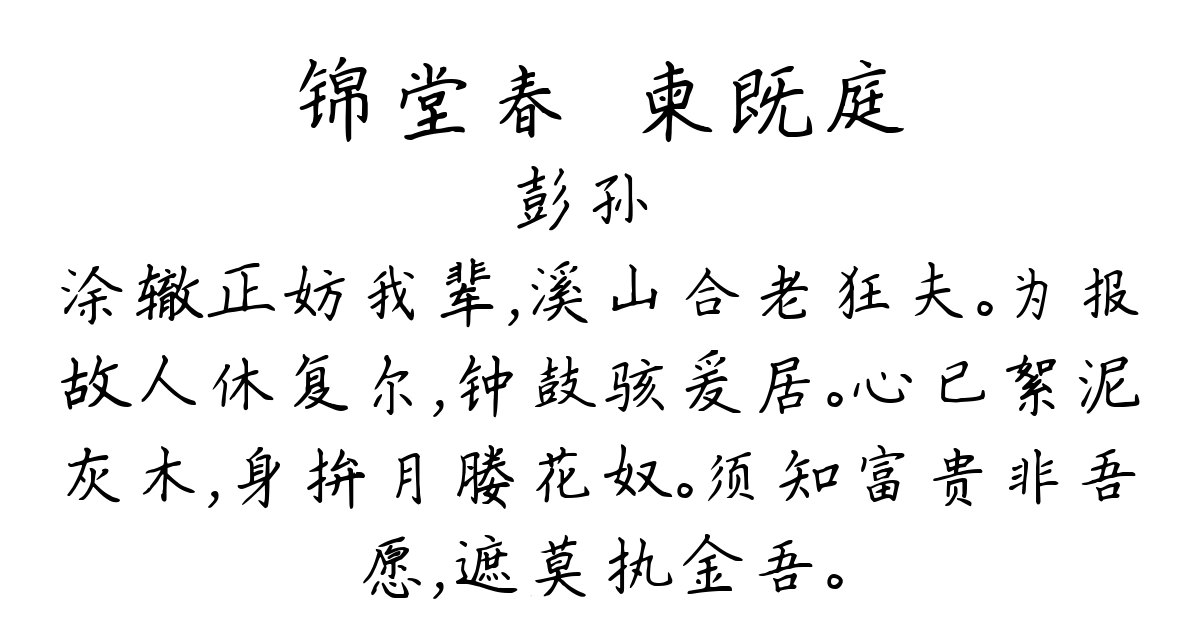 锦堂春 柬既庭
彭孙
涂辙正妨我辈,溪山合老狂夫。为报
故人休复尔,钟鼓骇爰居。心已絮泥
灰木,身拚月媵花奴。须知富贵非吾
愿,遮莫执金吾。